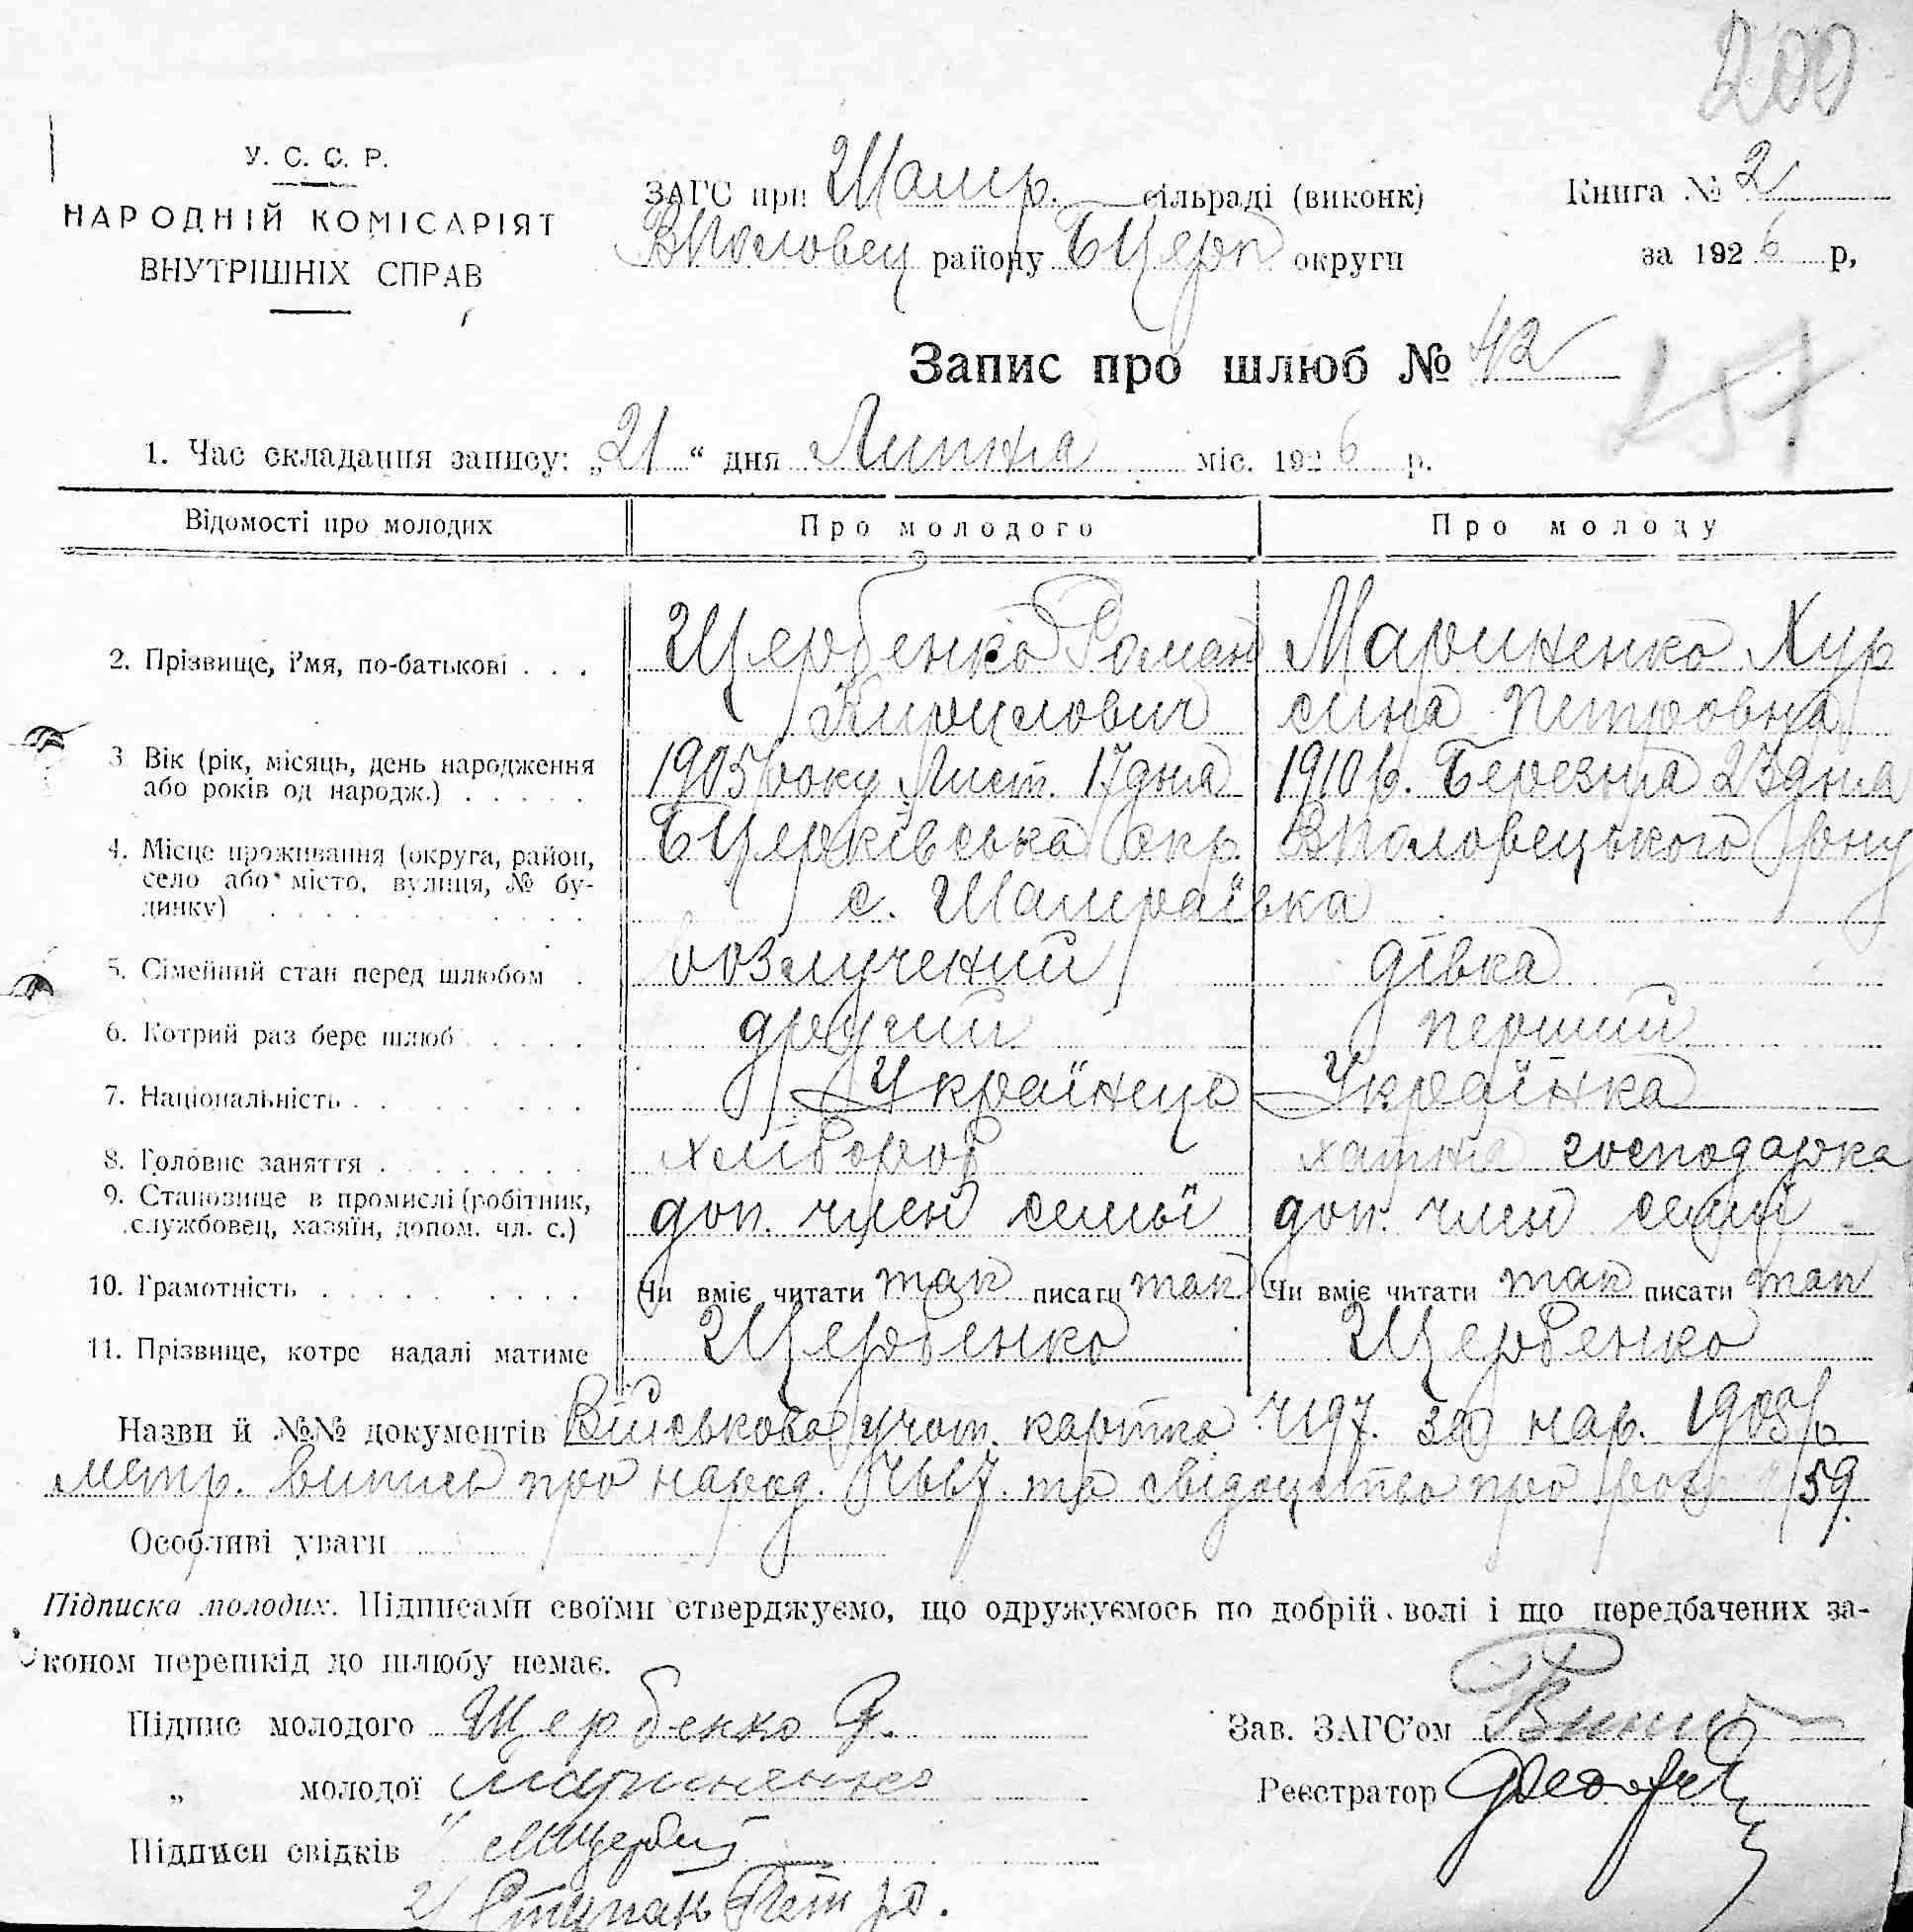 200
У. С. С. Р.
НАРОДНІЙ КОМІСАРІЯТ
ВНУТРІШНІХ СПРАВ
ЗАГС при Шамр. сільраді (виконк)
ВПоловец району БЦерк округи
Книга № 2
за 1926 р,
Запис про шлюб № 42
257
1. Час складання запису: „21“ дня Липня міс. 1926 р.
Відомості про молодих Про молодого Про молоду
2. Прізвище, і'мя, по-батькові . . . Щербенко Роман Мариненко Хур
Кирилович сина Петровна
3 Вік (рік, місяць, день народження 1905 року Лист. 17 дня 1910 р. Березня 23 дня
або років од народж.) . . . . .
4. Місце проживання (округа, район, БЦерківська окр. ВПоловецького рону
село або місто, вулиця, № бу-
динку) с. Шамраївка
5. Сімейний стан перед шлюбом . розлучений дівка
6. Котрий раз бере шлюб . . . . . другий перший
7. Національність . . . . . Українець Українка
8. Головне заняття . . . . . . . . хлібороб хатня господарка
9. Становище в промислі (робітник, доп. член семьї доп. член семьї
службовец, хазяїн, допом. чл. с.)
10. Грамотність . . . . . . . . . Чи вміє читати так писати так Чи вміє читати так писати так
11. Прізвище, котре надалі матиме Щербенко Щербенко
Назви й №№ документів Військова учот. картка Ч197. за нар. 1905 р.
метр. випись про народ. та свідоцтво про 59.
Особливі уваги
Підписка молодих. Підписами своїми стверджуємо, що одружуємось по добрій волі і що передбачених за-
коном перешкід до шлюбу немає.
Підпис молодого Щербенко Р.
Зав. ЗАГС'ом
„ молодої Мариненко
Реєстратор
Підписи свідків 1)
2)